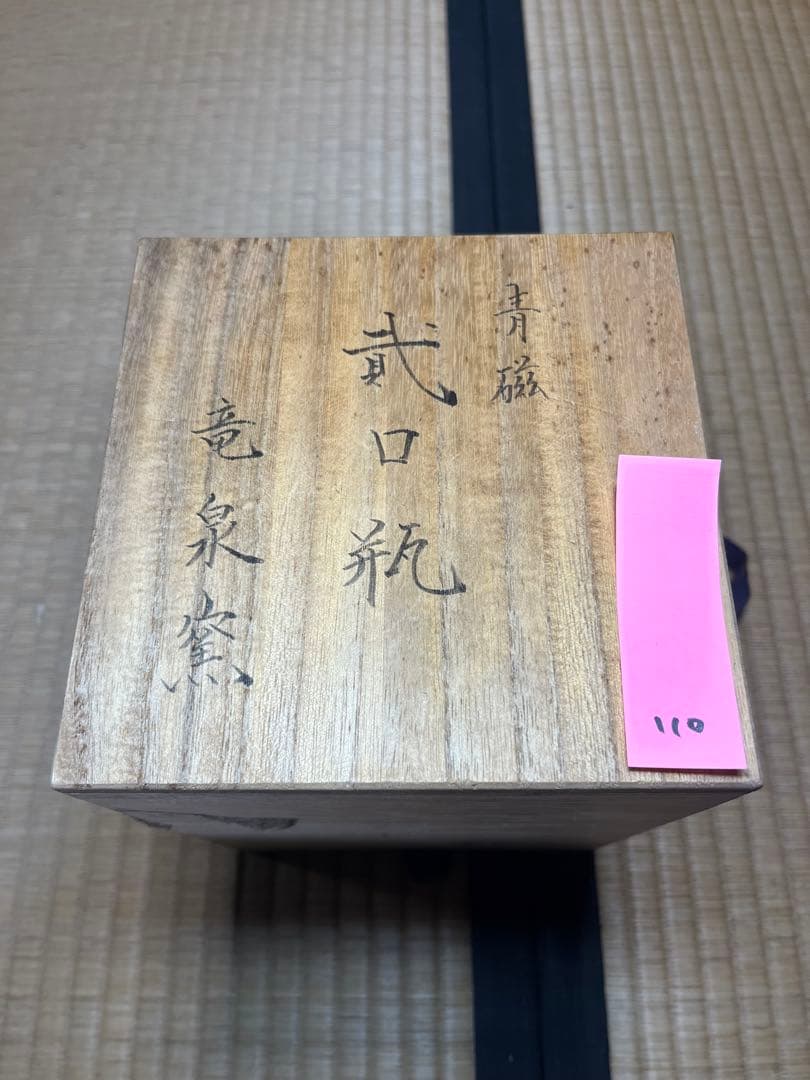 青磁
貳口瓶
竜泉窯
110